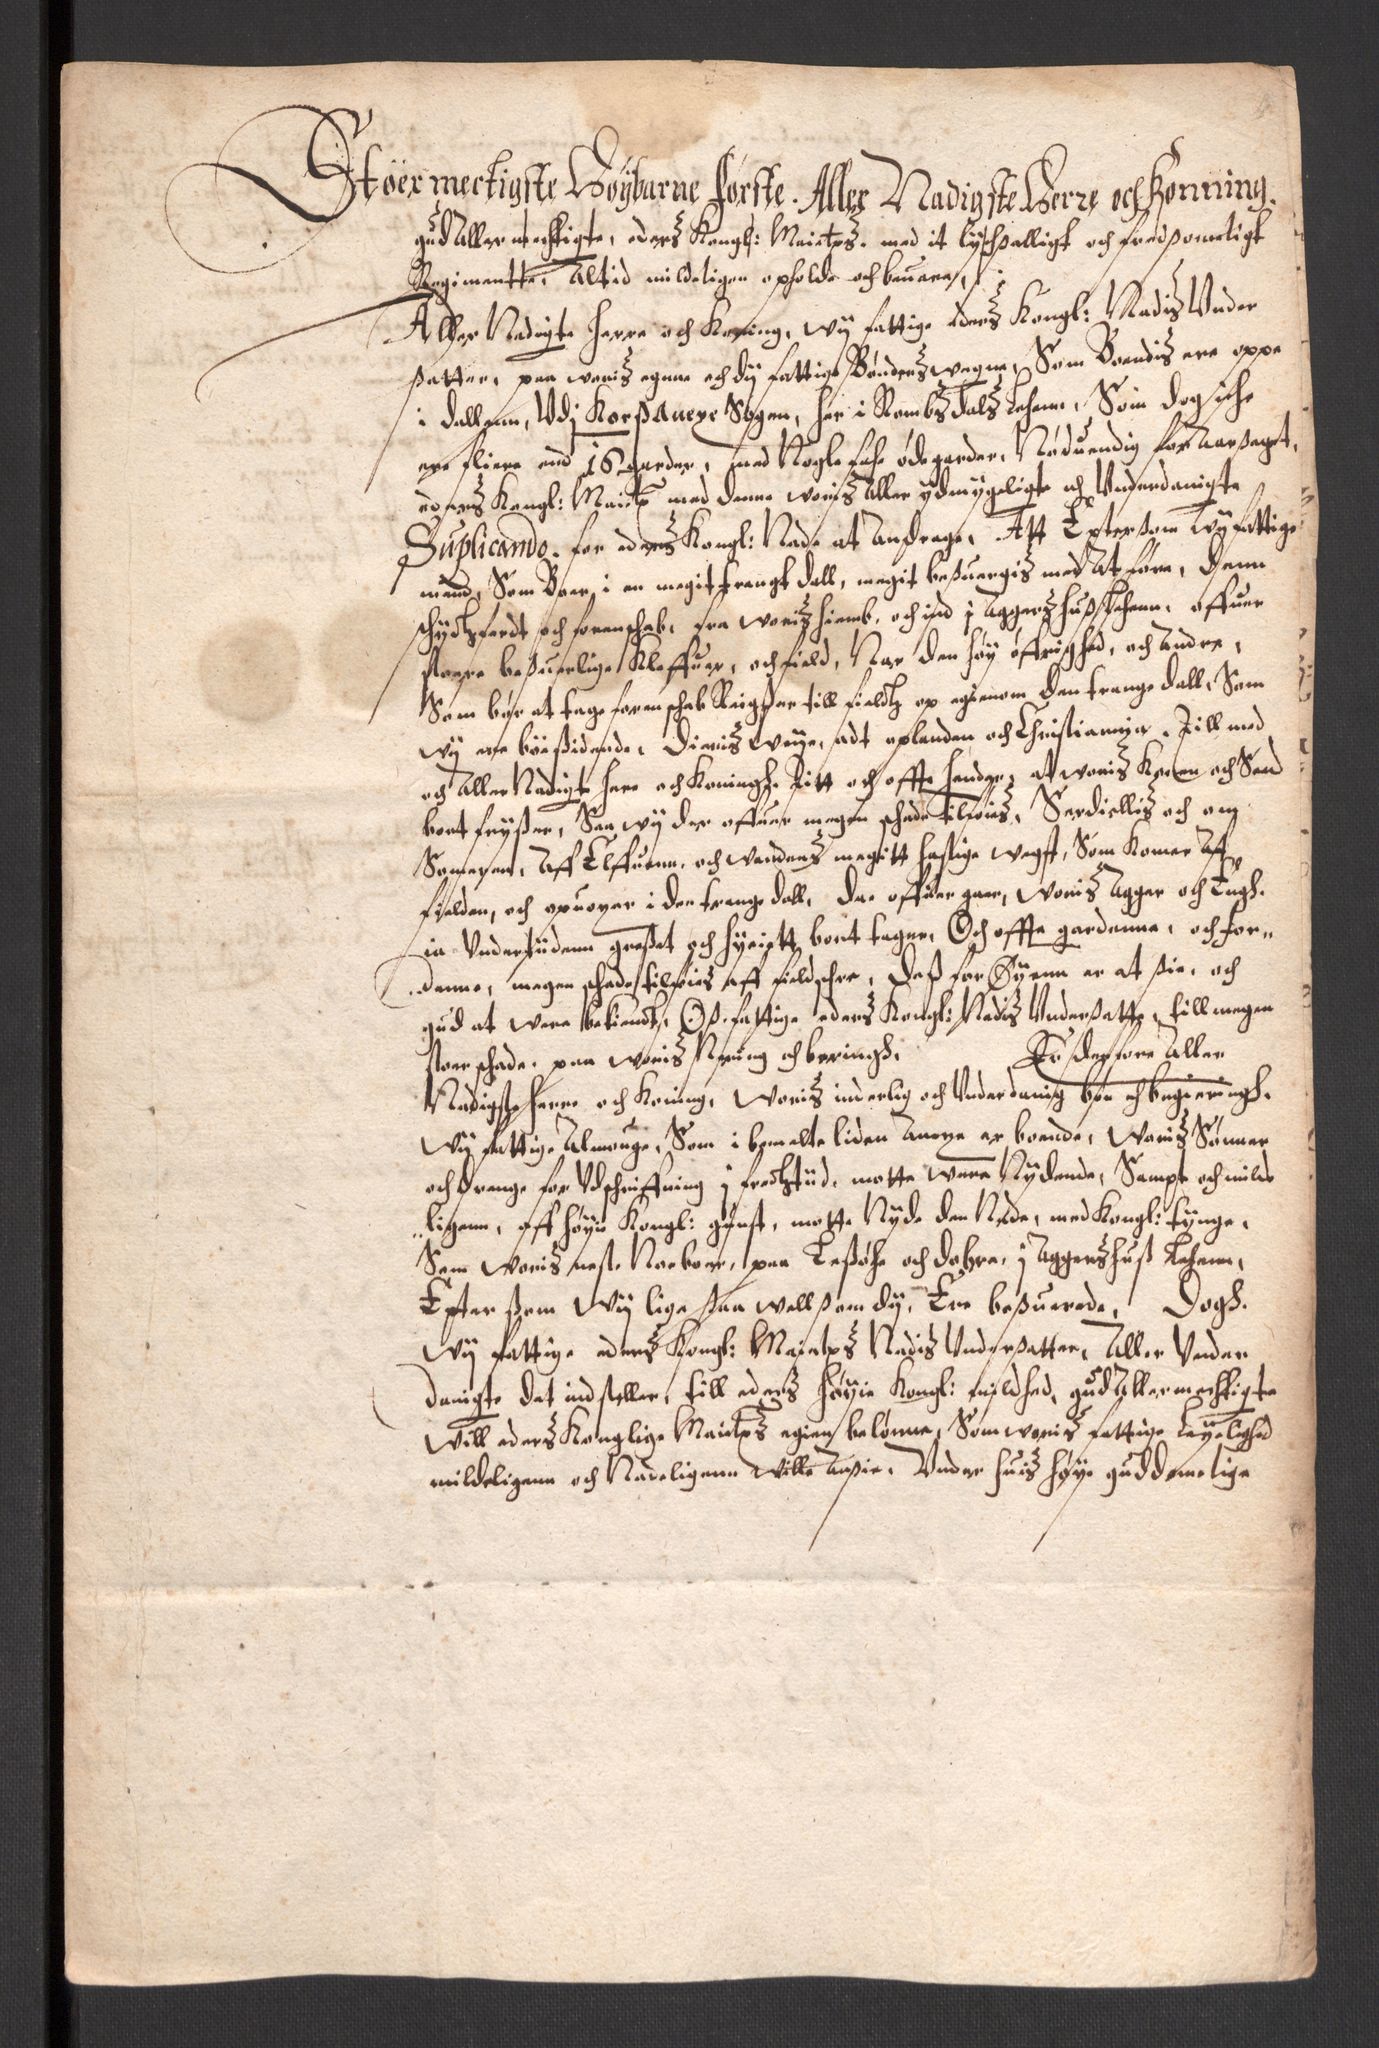 Stoermectigste Høybarne Første. Aller Nadigste Herre och Konning.
gud Allermechtigte, eders Kongl: Maietzs. med it lychsalligt och fredsomeligt
Regimentte, Altid mildeligen opholde och beuare,
Aller Nadigte Herre och Koning, wy fattige eders Kongl: Nadis Vnder
satter, paa woris egnne och dy fattige Bønders wegne, Som Boendis ere oppe
i dallenn, Vdj Korsz Aueye Sogen, her i Rombsdals Lehenn, Som dog iche
ere fliere end 16 garder, med Nogle fahe ødegarder, Nøduendig foraarsaget,
eders Kongl: Maietz med denne woris Aller ydmygeligte och Vnderdanigte
Suplicando. for eders Kongl: Nade at Andrage, Att Eptersom wy fattige
mend, Som Boer i en megit trangt dall, megit besuergis med At føre, denn
schydtzferdt och forenschab, fra woris hiemb, och ind j Aggershusz Lehenn, offuer
stoere besuerlige Kleffuer, och field, Nar den høy øffrighed, och Andre,
Som bør at tage forenschab Reigser till fieldtz op egienom den trange dall, Som
wy ere bøesidende, dieris weye, adt oplanden och Christiannia. Till med
och Aller Nadigte Here och Koningh. Titt och offte hender, at woris Koren och Sæd
bort fryser, Saa wy der offuer megen schade tilføies, Serdiellis och om
Someren, Aff Elffuenn, och wandens megitt hastige wegst, Som Komer Aff
fielden, och opuoxer i den trange dall, der offuer gaer, woris Agger och Eng.
ia Vndertiidenn gresset och høyiett bort tager, Och offte gardenne, och for„
denne, megen schade tilføies Aff fieldschre, desz for Øyenn er at sie, och
gud at were bekiendt, Osz fattige eders Kongl: Nadis Vndersatte, till megen
stoer schade, paa woris Nering och beringh. Er derfore Aller
Nadigste Herre och Koning, woris inderlig och Vnderdanig bøn och begieringh.
wy fattige Almouge, Som i bemelte liden Aueye er boende, woris Sønner
och drenge for Vdschriffning j fredtztiid, motte were Nydende, Sampt och milde
„ligenn, aff høyie Kongl: gunst, motte Nyde den Nade, med Kongl: tynge,
Som woris neste Naeboer, paa Lesøhe och dofre, j Aggershusz Lehenn,
Efter som wy lige saa well som dy, Ere besuerede, Dogh.
wy fattige eders Kongl: Maietzs Nadis Vndersatter, Aller Vnder
danigte det indsteller, till eders høyie Kongl: mildhed, gud Allermechtigte
will eders Konglige Maietzs egien belønne, Som woris fattige leyelighed
mildeligenn och Nadeligenn wille Ansie, Vnder huis høye guddomelige